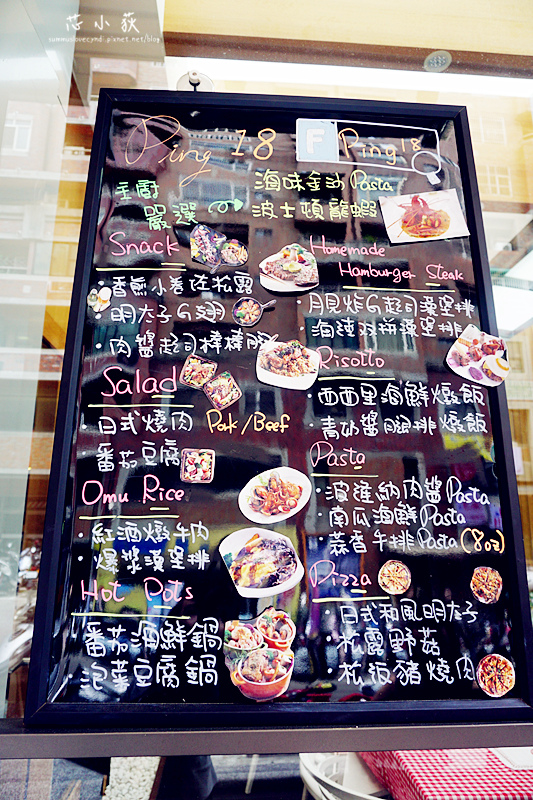 芯小荻
sammuslovecandi.pixnet.net/blog
Ping 18
F Ping18
主廚
嚴選
海味金沙Pasta
波士頓龍蝦
Snack
·香煎小卷佐松露
·明太子G翅
·肉醬起司棒棒腿
Salad
·日式燒肉 Pork/Beef
·番茄豆腐
Omu Rice
·紅酒燉牛肉
·爆漿漢堡排
Hot Pots
·番茄海鮮鍋
·泡菜豆腐鍋
Homemade
Hamburger Steak
·月見炸G起司漢堡排
·海陸双拼漢堡排
Risotto
·西西里海鮮燉飯
·青奶醬腿排燉飯
Pasta
·濱維納肉醬Pasta
·南瓜海鮮Pasta
·蒜香牛排Pasta(8oz)
Pizza
·日式和風明太子
·松露野菇
·松板豬燒肉